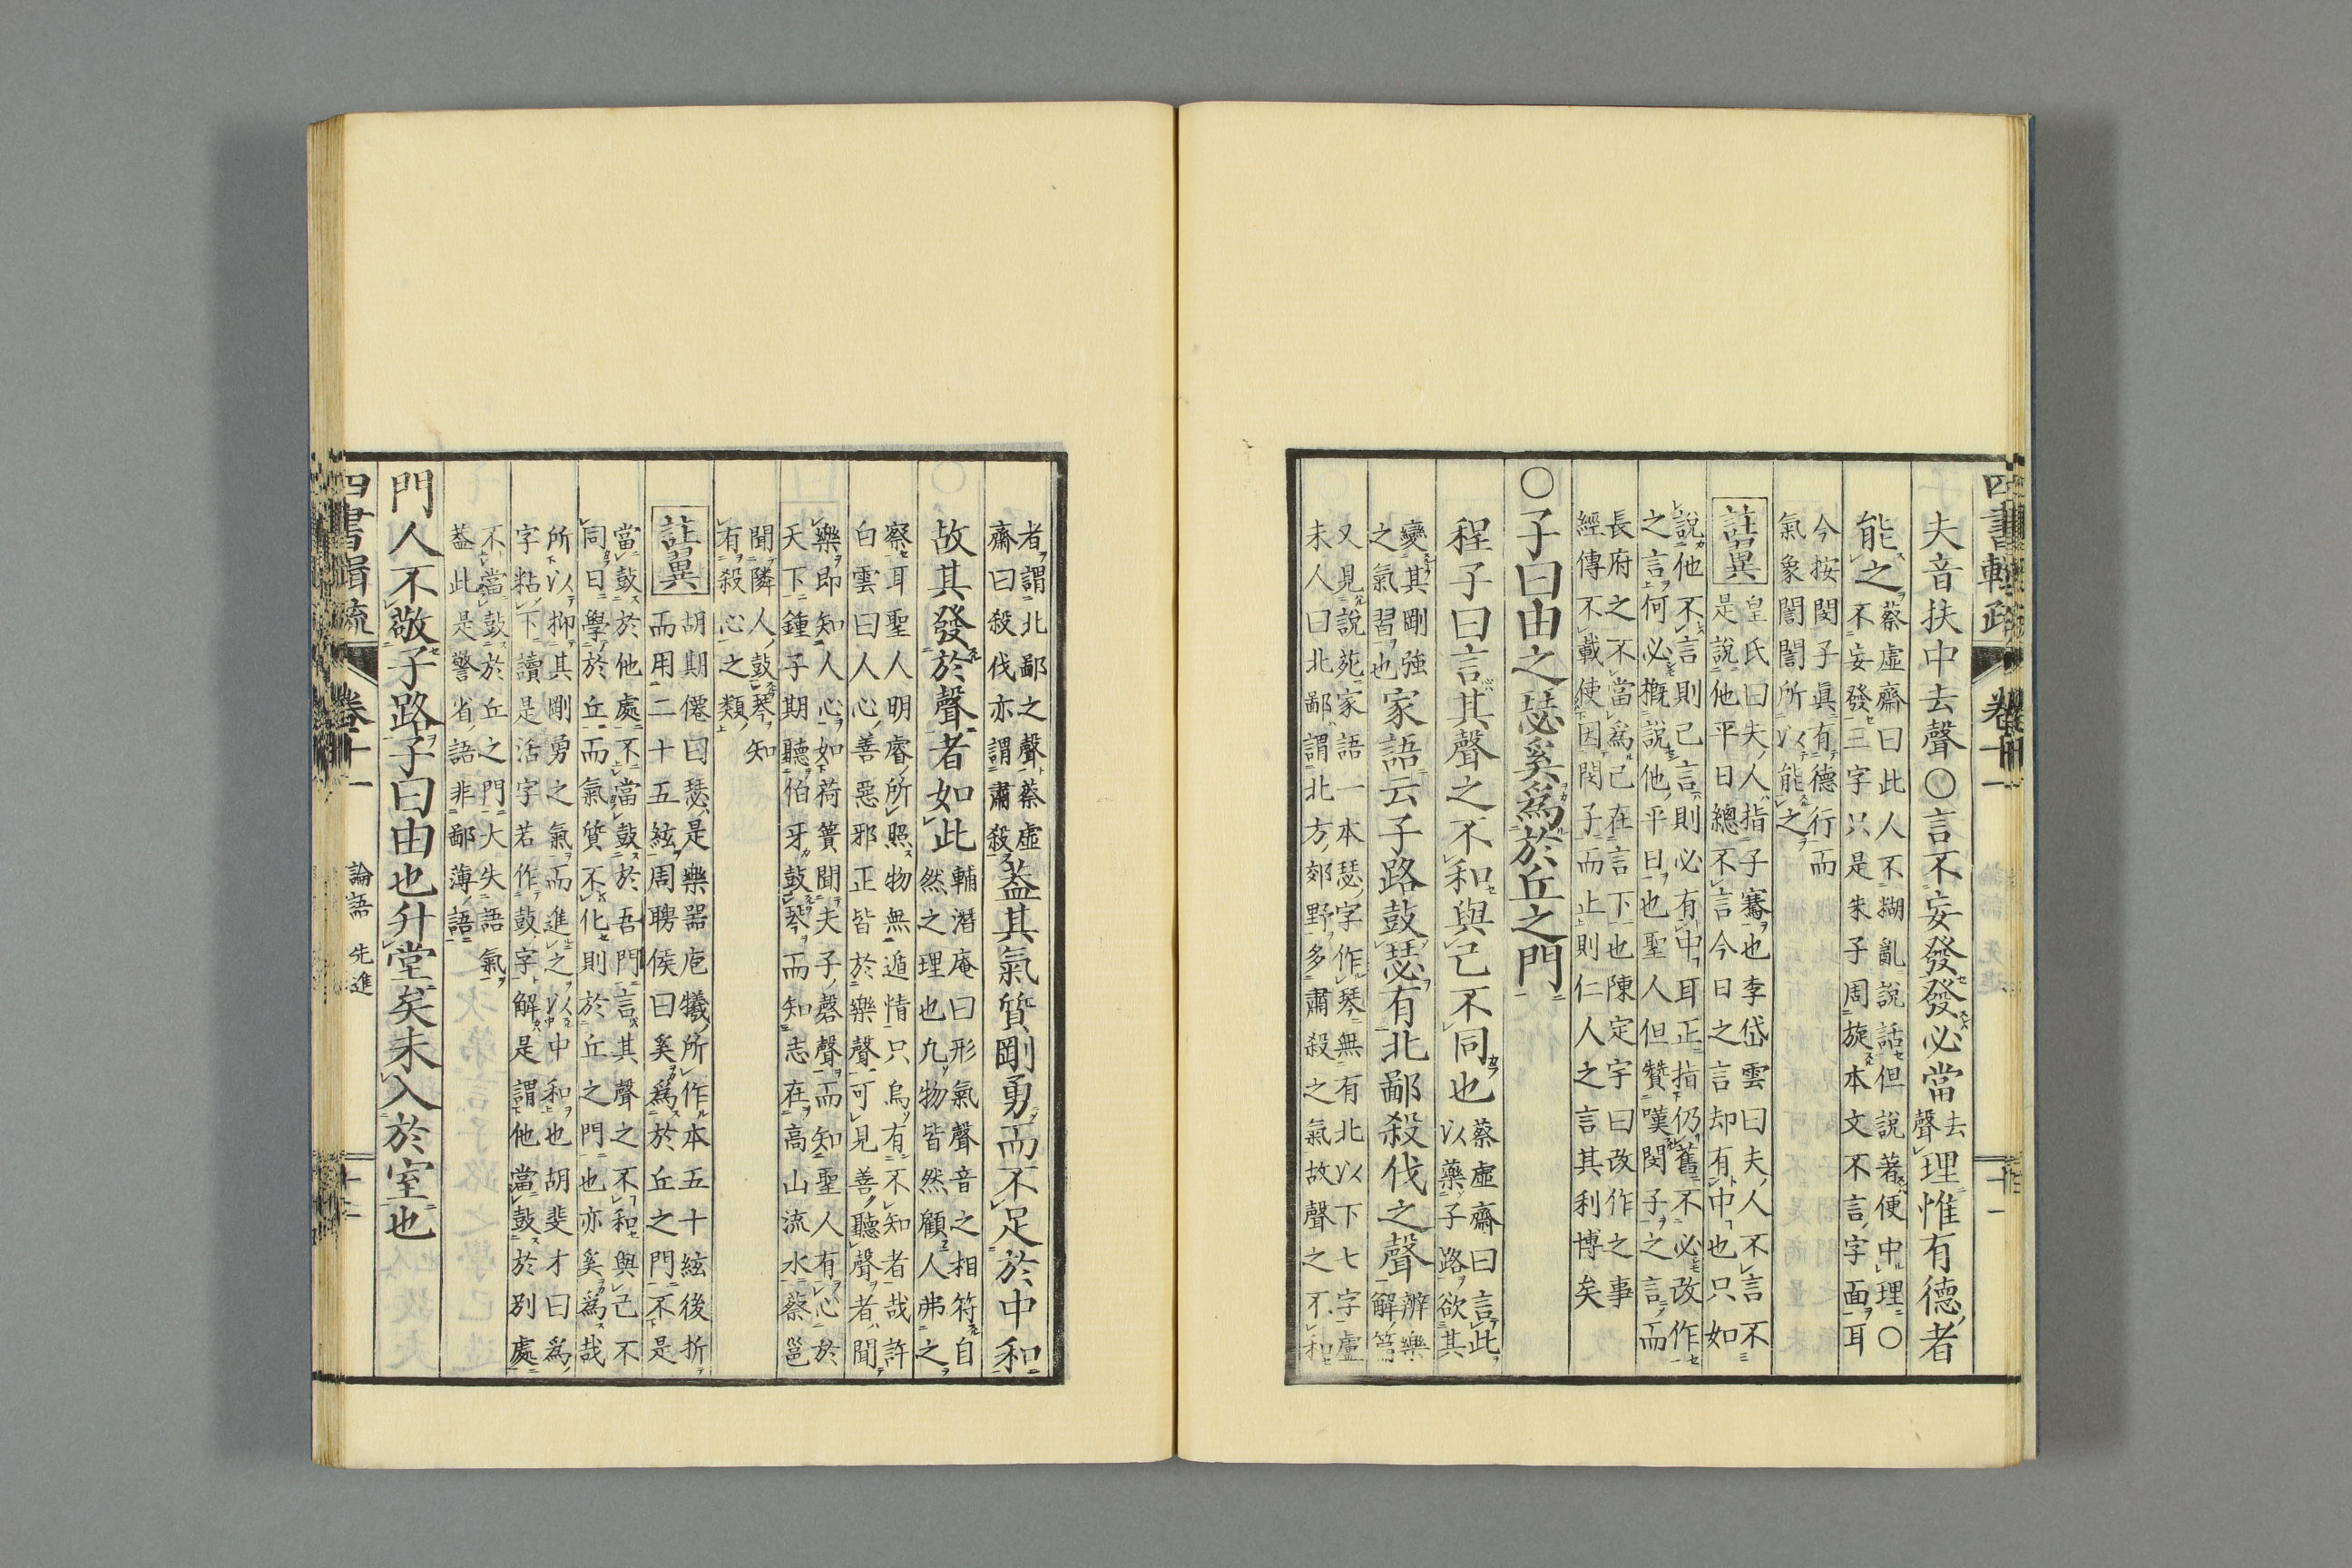 四書輯疏 卷十一 十一
夫音扶中去聲○言不妄發發必當去聲理惟有德者
能之蔡虛齋曰此人不糊亂說話但說著便中理○
不妄發三字只是朱子周旋本文不言字面耳
今按閔子眞有德行而
氣象誾誾所以能之
註異皇氏曰夫人指子騫也李岱雲曰夫人不言不
是說他平日總不言今日之言却有中也只如
說他不言則已言則必有中耳正指仍舊不必改作
之言何必概說他平日也聖人但贊嘆閔子之言而
長府之不當爲已在言下也陳定宇曰改作之事
經傳不載使因閔子而止則仁人之言其利博矣
○子曰由之瑟奚爲於丘之門
程子曰言其聲之不和與己不同也蔡虛齋曰言此
以藥子路欲其
變其剛強
之氣習也家語云子路鼓瑟有北鄙殺伐之聲辨樂
解
又見說苑家語一本瑟字作琴無有北以下七字盧
未人曰北鄙謂北方郊野多肅殺之氣故聲之不和
者謂北鄙之聲蔡虛
齋曰殺伐亦謂肅殺蓋其氣質剛勇而不足於中和
故其發於聲者如此輔潛庵曰形氣聲音之相符自
然之理也凡物皆然顧人弗之
察耳聖人明睿所照物無遁情只烏有不知者哉許
白雲曰人心善惡邪正皆於樂聲可見善聽聲者聞
樂即知人心如荷蕢聞夫子磬聲而知聖人有心於
天下鍾子期聽伯牙鼓琴而知志在高山流水蔡邕
聞隣人鼓琴知
有殺心之類
註異胡期僊曰瑟是樂器庖犧所作本五十絃後折
而用二十五絃周聘侯曰奚爲於丘之門不是
當鼓於他處不當鼓於吾門言其聲之不和與己不
同曰學於丘而氣質不化則於丘之門也亦奚爲哉
所以抑其剛勇之氣而進之以中和也胡斐才曰爲
字粘下讀是活字若作鼓字解是謂他當鼓於別處
不當鼓於丘之門大失語氣
蓋此是警省語非鄙薄語
門人不敬子路子曰由也升堂矣未入於室也
四書輯疏 卷十一 論語 先進 十一